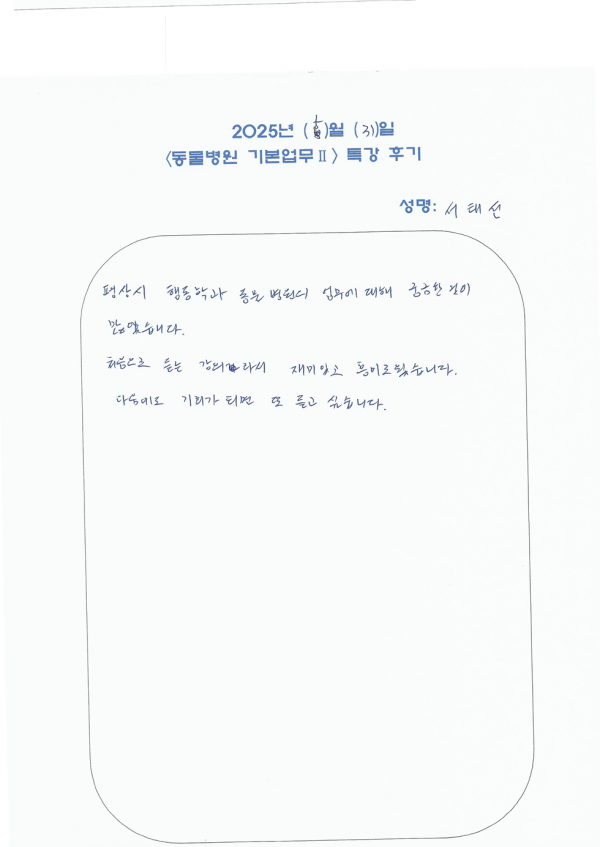 2025년 ( )월 (31)일
<동물병원 기본업무Ⅱ> 특강 후기
성명: 서태선
평상시 행동학과 동물병원의 업무에 대해 궁금한 것이
많았습니다.
처음으로 듣는 강의라서 재미있고 흥미로웠습니다.
다음에도 기회가 되면 또 듣고 싶습니다.